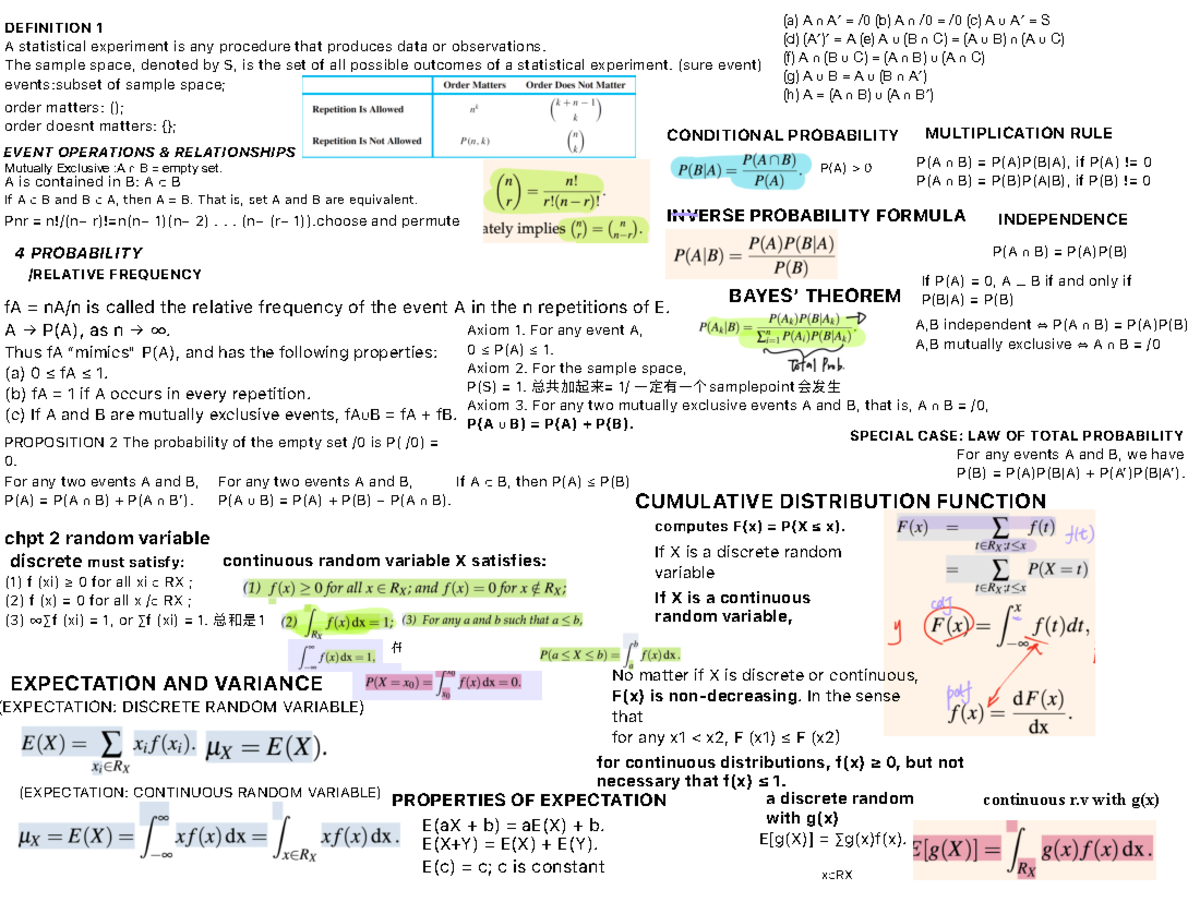 DEFINITION 1
A statistical experiment is any procedure that produces data or observations.
The sample space, denoted by S, is the set of all possible outcomes of a statistical experiment. (sure event)
events:subset of sample space;
order matters: ();
order doesnt matters: {};
Order Matters Order Does Not Matter
Repetition Is Allowed n^k (k+n−1 k)
Repetition Is Not Allowed P(n,k) (n k)
EVENT OPERATIONS & RELATIONSHIPS
Mutually Exclusive :A ∩ B = empty set.
A is contained in B: A ⊂ B
If A ⊂ B and B ⊂ A, then A = B. That is, set A and B are equivalent.
Pnr = n!/(n− r)!=n(n− 1)(n− 2) . . . (n− (r− 1)).choose and permute
(n r) = n!/r!(n−r)!.
ately implies (n r) = (n n−r).
(a) A ∩ A′ = /0 (b) A ∩ /0 = /0 (c) A ∪ A′ = S
(d) (A′)′ = A (e) A ∪ (B ∩ C) = (A ∪ B) ∩ (A ∪ C)
(f) A ∩ (B ∪ C) = (A ∩ B) ∪ (A ∩ C)
(g) A ∪ B = A ∪ (B ∩ A′)
(h) A = (A ∩ B) ∪ (A ∩ B′)
CONDITIONAL PROBABILITY
P(B|A) = P(A∩B)/P(A). P(A) > 0
MULTIPLICATION RULE
P(A ∩ B) = P(A)P(B|A), if P(A) != 0
P(A ∩ B) = P(B)P(A|B), if P(B) != 0
INVERSE PROBABILITY FORMULA
P(A|B) = P(A)P(B|A)/P(B)
INDEPENDENCE
P(A ∩ B) = P(A)P(B)
If P(A) = 0, A _ B if and only if
P(B|A) = P(B)
A,B independent ⇔ P(A ∩ B) = P(A)P(B)
A,B mutually exclusive ⇔ A ∩ B = /0
BAYES’ THEOREM
P(A_k|B) = P(A_k)P(B|A_k)/∑_{i=1}^n P(A_i)P(B|A_k).
Total Prob.
4 PROBABILITY
/RELATIVE FREQUENCY
fA = nA/n is called the relative frequency of the event A in the n repetitions of E.
A → P(A), as n → ∞.
Thus fA “mimics” P(A), and has the following properties:
(a) 0 ≤ fA ≤ 1.
(b) fA = 1 if A occurs in every repetition.
(c) If A and B are mutually exclusive events, fA∪B = fA + fB.
Axiom 1. For any event A,
0 ≤ P(A) ≤ 1.
Axiom 2. For the sample space,
P(S) = 1. 总共加起来= 1/ 一定有一个samplepoint会发生
Axiom 3. For any two mutually exclusive events A and B, that is, A ∩ B = /0,
P(A ∪ B) = P(A) + P(B).
PROPOSITION 2 The probability of the empty set /0 is P( /0) =
0.
For any two events A and B,
P(A) = P(A ∩ B) + P(A ∩ B′).
For any two events A and B,
P(A ∪ B) = P(A) + P(B) − P(A ∩ B).
If A ⊂ B, then P(A) ≤ P(B)
SPECIAL CASE: LAW OF TOTAL PROBABILITY
For any events A and B, we have
P(B) = P(A)P(B|A) + P(A′)P(B|A′).
chpt 2 random variable
discrete must satisfy:
(1) f (xi) ≥ 0 for all xi ⊂ RX ;
(2) f (x) = 0 for all x /⊂ RX ;
(3) ∞∑f (xi) = 1, or ∑f (xi) = 1. 总和是1
continuous random variable X satisfies:
(1) f(x) ≥ 0 for all x ∈ R_X; and f(x) = 0 for x ∉ R_X;
(2) ∫_{R_X} f(x)dx = 1; (3) For any a and b such that a ≤ b,
∫_{−∞}^{∞} f(x)dx = 1,
P(a ≤ X ≤ b) = ∫_a^b f(x)dx.
P(X = x_0) = ∫_{x_0}^{x_0} f(x)dx = 0.
CUMULATIVE DISTRIBUTION FUNCTION
computes F(x) = P(X ≤ x).
If X is a discrete random
variable
If X is a continuous
random variable,
F(x) = ∑_{t∈R_X;t≤x} f(t) f(t)
= ∑_{t∈R_X;t≤x} P(X = t)
cdf
y F(x) = ∫_{−∞}^x f(t)dt,
pdf
f(x) = dF(x)/dx.
No matter if X is discrete or continuous,
F(x) is non-decreasing. In the sense
that
for any x1 < x2, F (x1) ≤ F (x2)
for continuous distributions, f(x) ≥ 0, but not
necessary that f(x) ≤ 1.
EXPECTATION AND VARIANCE
(EXPECTATION: DISCRETE RANDOM VARIABLE)
E(X) = ∑_{x_i∈R_X} x_i f(x_i). μ_X = E(X).
(EXPECTATION: CONTINUOUS RANDOM VARIABLE)
μ_X = E(X) = ∫_{−∞}^{∞} xf(x)dx = ∫_{x∈R_X} xf(x)dx.
PROPERTIES OF EXPECTATION
E(aX + b) = aE(X) + b.
E(X+Y) = E(X) + E(Y).
E(c) = c; c is constant
a discrete random
with g(x)
E[g(X)] = ∑g(x)f(x).
x⊂RX
continuous r.v with g(x)
E[g(X)] = ∫_{R_X} g(x)f(x)dx.